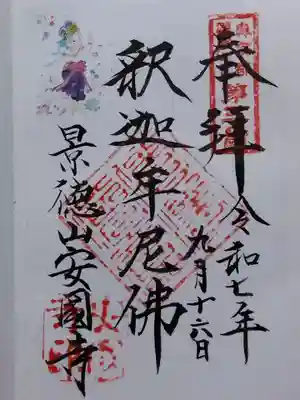 奉拜
令和七年
九月十六日
釈迦牟尼佛
景徳山安國寺